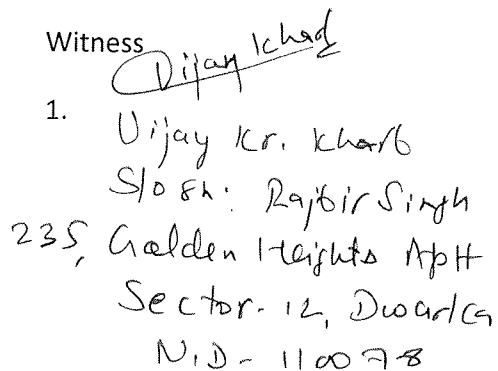 Witness
Vijay Kharb
1.
Vijay Kr. Kharb
S/o Sh. Rajbir Singh
235, Golden Heights Aptt
Sector-12, Dwarka
N.D - 110078